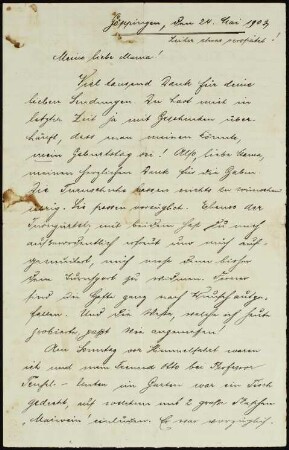 Göppingen, den 24. Mai 1903.
Leider etwas verspätet!
Meine liebe Mama!
Viel tausend Dank für deine
lieben Sendungen. Du hast mich in
letzter Zeit ja mit Geschenken über-
häuft, dass man meinen könnte,
mein Geburtstag sei! Also, liebe Mama,
meinen herzlichen Dank für die Gaben.
Die Turnschuhe lassen nichts zu wünschen
übrig. Sie passen vorzüglich. Ebenso der
mit beiden hast Du mich
ausserordentlich erfreut und mich auf-
gemuntert, mich noch dem
dem Turnsport zu widmen. Ferner
sind die Hefte ganz nach Wunsch ausge-
fallen. Und die Weste, welche ich heute
probierte, passt wie angegossen!
Am Sonntag vor Himmelfahrt waren
ich und mein Freund Otto bei Professor
Unten im Garten war ein Tisch
gedeckt, auf welchem 2 große Flaschen
„Maiwein“ einluden. Es war vorzüglich.